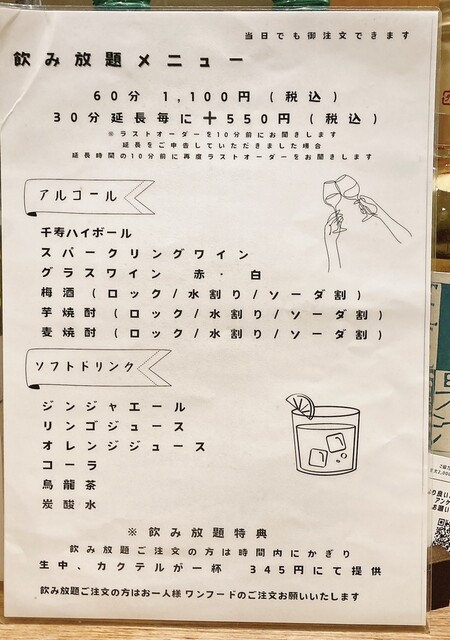 当日でも御注文できます
飲み放題メニュー
60分 1,100円(税込)
30分延長毎に+550円(税込)
※ラストオーダーを10分前にお聞きします
延長をご申告していただきました場合
延長時間の10分前に再度ラストオーダーをお聞きします
アルコール
千寿ハイボール
スパークリングワイン
グラスワイン 赤・白
梅酒(ロック/水割り/ソーダ割)
芋焼酎(ロック/水割り/ソーダ割)
麦焼酎(ロック/水割り/ソーダ割)
ソフトドリンク
ジンジャエール
リンゴジュース
オレンジジュース
コーラ
烏龍茶
炭酸水
※飲み放題特典
飲み放題ご注文の方は時間内にかぎり
生中、カクテルが一杯 345円にて提供
飲み放題ご注文の方はお一人様 ワンフードのご注文お願いいたします